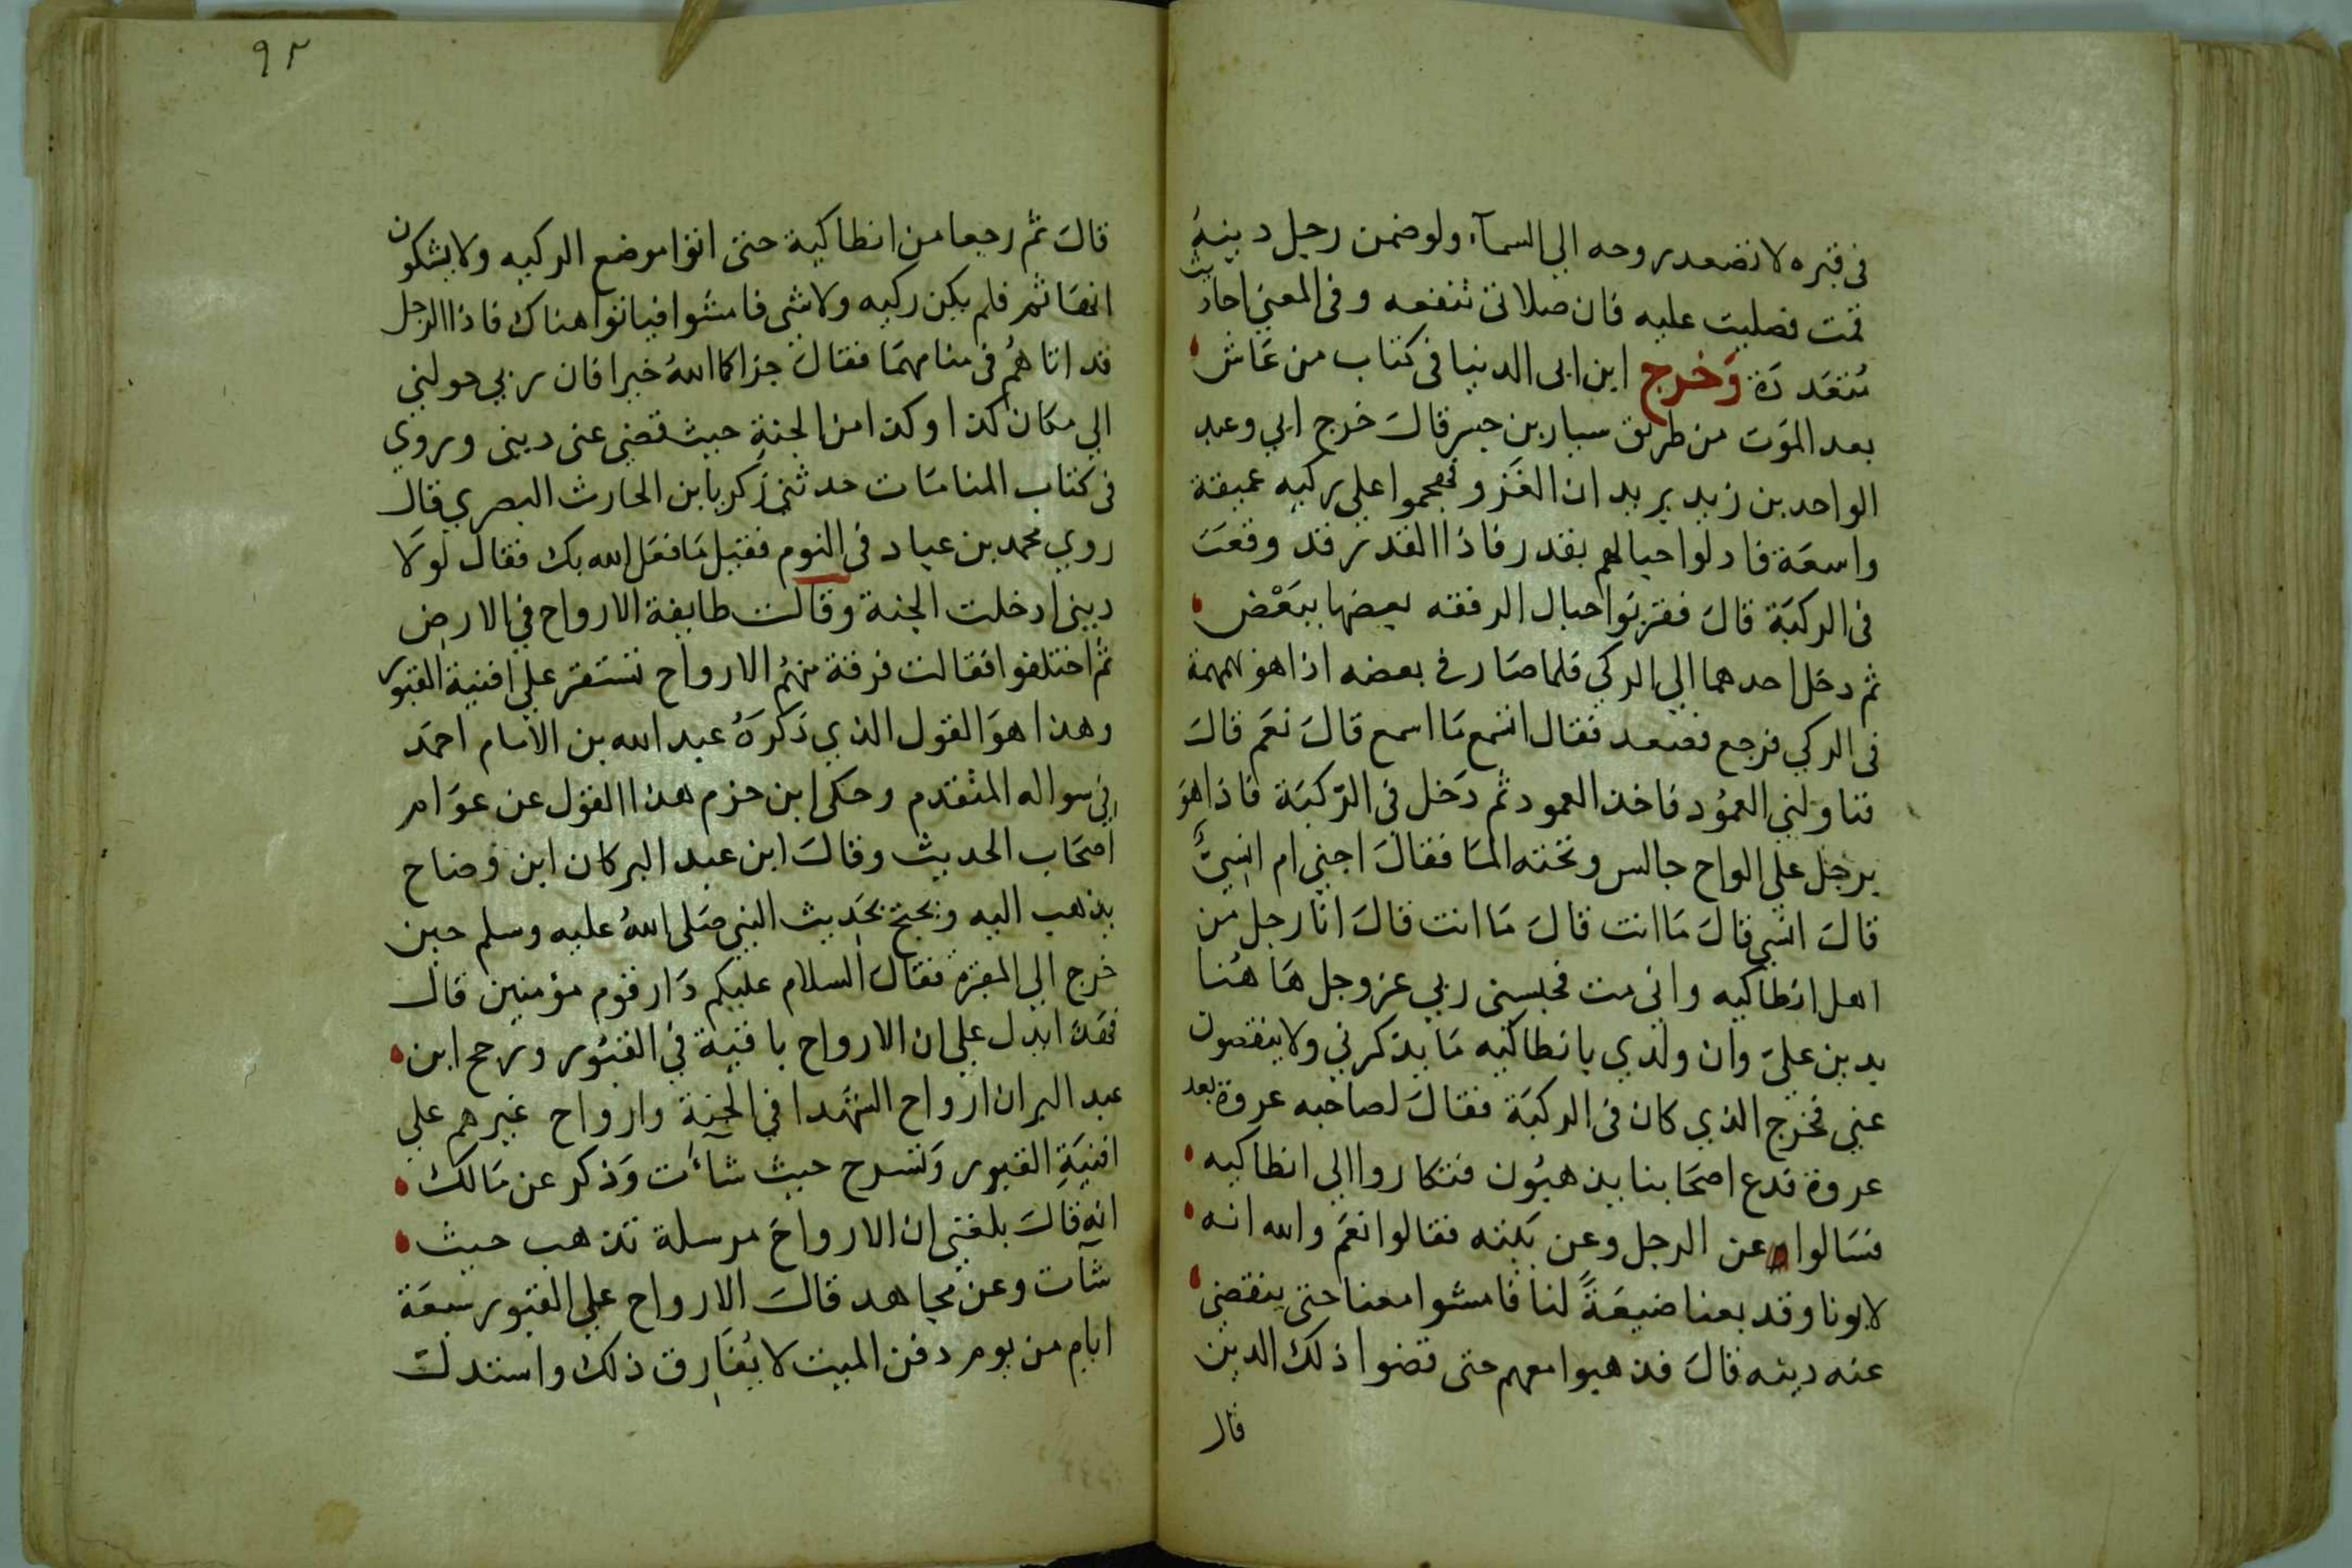 في قبره لا تصعد روحه الي السمآء ولو ضمن رجل دينهُ
قمت فصليت عليه فان صلاتى تنفعه وفى المعني احاديث
مُتعَددَة وَخرج ابن ابى الدنيا فى كتاب من عَاش
بعد الموَت من طريق سيار بن جسر قالَ خرج ابي وعبد
الواحد بن زيد يريدان الغَزو فهجموا علي ركيه عميقة
واسعَة فادلوا حبالهم بقدر فاذا القدر قد وقعَت
فى الركيَة قالَ فقرنوا حبال الرفقه بعضها ببَعْض
ثم دخل احدهما الي الركي فلما صَار في بعضه اذا هو بهمهمة
فى الركي فرجع فصعد فقال اتسمع مَا اسمع قالَ نعَم قالَ
فناولني العمُود فاخذ العمود ثم دَخل فى الرّكيَة فاذا هوَ
برجل علي الواح جالس وتحته المَا فقالَ اجني ام انسِيٌّ
قالَ انسي قالَ مَا انت قالَ مَا انت قالَ انا رجل من
اهل انطاكيه وانى مت فحبسنى ربي عز وجل هَا هُنا
بدين عليَ وان ولدي بانطاكيه مَا يذكرني ولا يقضون
عني فخرج الذي كان فى الركيَة فقالَ لصاحبه عروة بعد
عروة فدع اصحَابنا يذهبُون فتكاروا الي انطاكيه
فسَالوا عن الرجل وعن بَنيه فقالوا نعَم والله انه
لابونا وقد بعنا ضيعَةً لنا فامشوا معنا حتى يقضي
عنه دينه قالَ فذهبوا معهم حتى قضوا ذلك الدين
قال
٩٢
قالَ ثم رجعا من انطاكية حتى اتوا موضع الركيه ولا يشكون
انهَا ثم فلم يكن ركيه ولا شي فامسَوا فباتوا هناك فاذا الرجل
قد اتاهُم فى منامهمَا فقالَ جزاكما اللهُ خيرا فان ربي حولني
الي مكان كذا وكذا من الجنةِ حيث قضي عنى دينى وروي
فى كتاب المنامَات حدثنى زكريا بن الحارث البصري قال
روي محمد بن عباد فى النوم فقيل مَا فعَل الله بك فقال لوَلا
دينى ادخلت الجنة وقالت طايفة الارواح في الارض
ثم اختلفوا فقالت فرقة منهُم الارواح تستقر علي افنية القبور
وهذا هوَ القول الذي ذَكرَهُ عبد الله بن الامام احمَد
في سواله المتقدم وحكى ابن حزم هذا القوَل عن عوَام
اصحَاب الحديث وقالَ ابن عبد البر كان ابن وضاح
يذهب اليه ويحتج بحَديث النبي صَلى اللهُ عليه وسلم حين
خرج الي المقبرة فقالَ السلام عليكم دَار قوم مؤمنين قال
فهَذا يدل علي ان الارواح باقيَة في القبُور ورجح ابن
عبد البر ان ارواح الشهَدا في الجنة وارواح غيرهم علي
افنيَةِ القبور وَتسرح حيث شاءَت وَذكر عن مَالك
انه قالَ بلغني ان الارواحَ مرسلة تذهب حيث
شآت وعن مجاهد قالَ الارواح علي القبور سبعَة
ايام من يوم دفن الميت لا يُفارق ذلك واستدلت